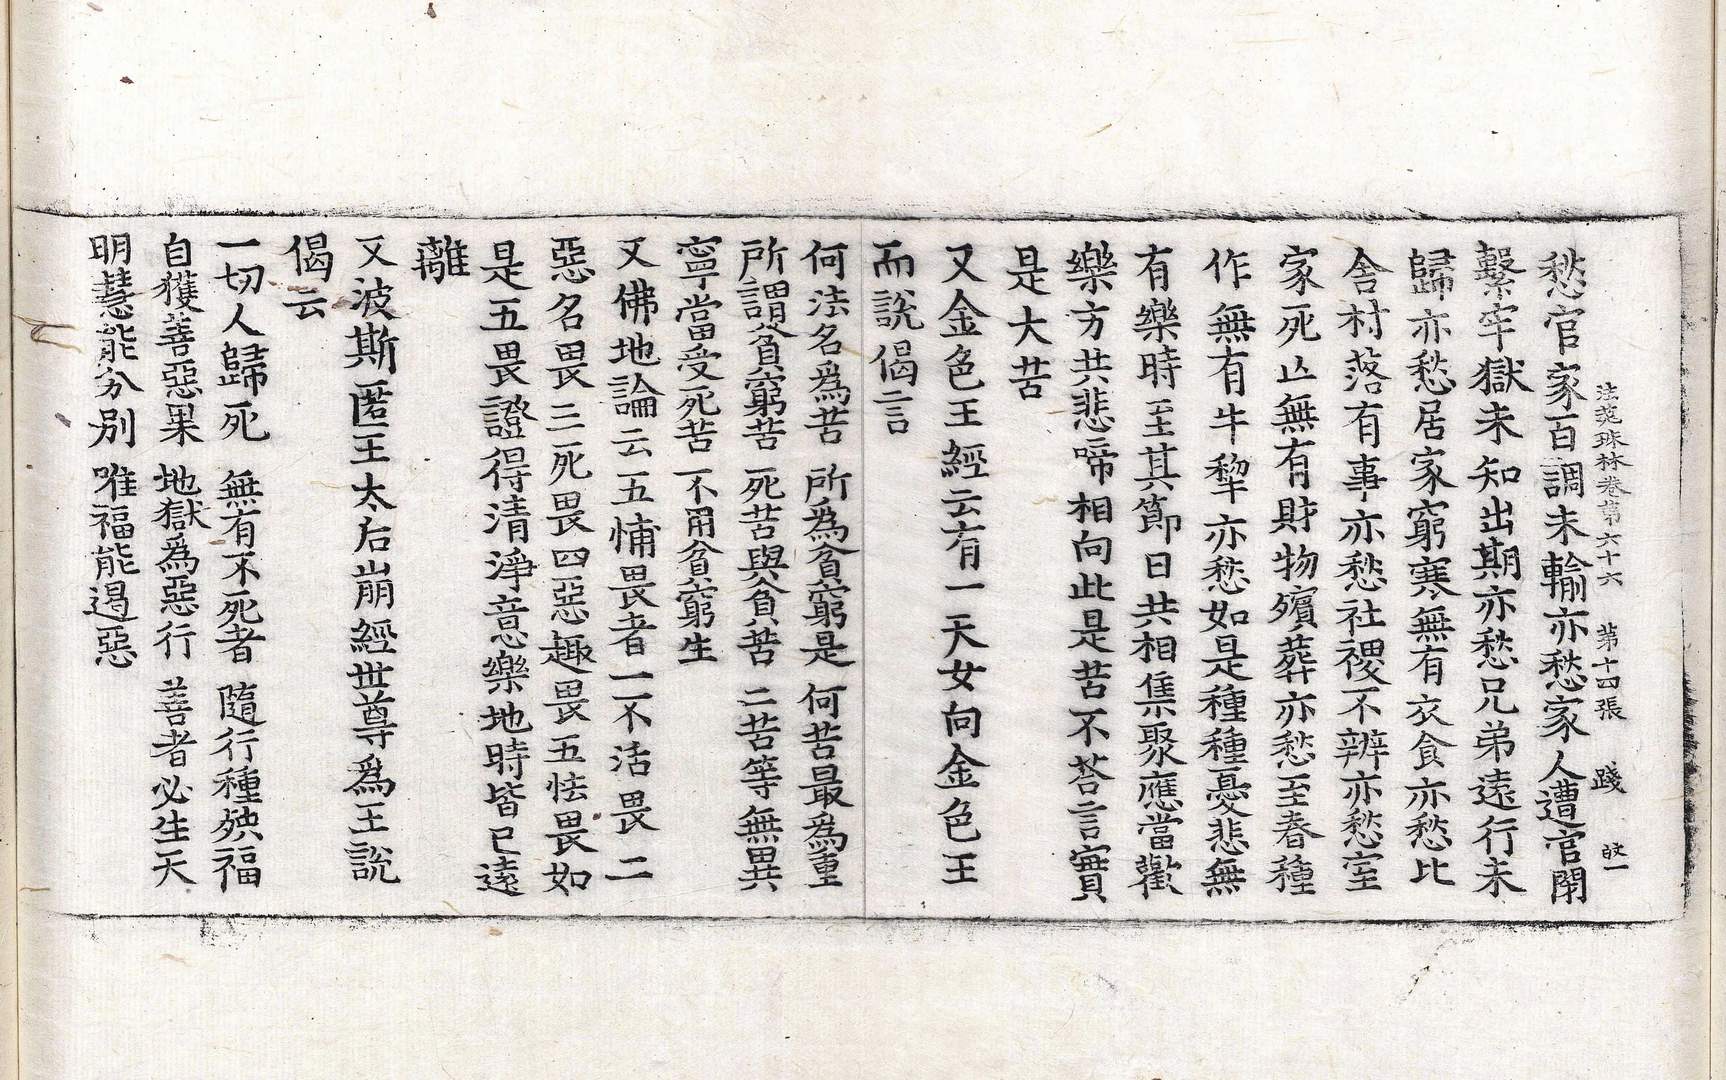 法苑珠林卷第六十六　第十四張　踐
愁官家百調未輸亦愁家人遭官閉
繫牢獄未知出期亦愁兄弟遠行未
歸亦愁居家窮寒無有衣食亦愁比
舍村落有事亦愁社稷不辨亦愁室
家死亡無有財物殯葬亦愁至春種
作無有牛犂亦愁如是種種憂悲無
有樂時至其節日共相集聚應當歡
樂方共悲啼相向此是苦不荅言實
是大苦
又金色王經云有一天女向金色王
而說偈言
何法名爲苦　所爲貧窮是　何苦最爲重
所謂貧窮苦　死苦與貧苦　二苦等無異
寧當受死苦　不用貧窮生
又佛地論云五怖畏者一不活畏二
惡名畏三死畏四惡趣畏五怯畏如
是五畏證得清淨意樂地時皆已遠
離
又波斯匿王太后崩經世尊爲王說
偈云
一切人歸死　無有不死者　隨行種殃福
自獲善惡果　地獄爲惡行　善者必生天
明慧能分別　唯福能遏惡